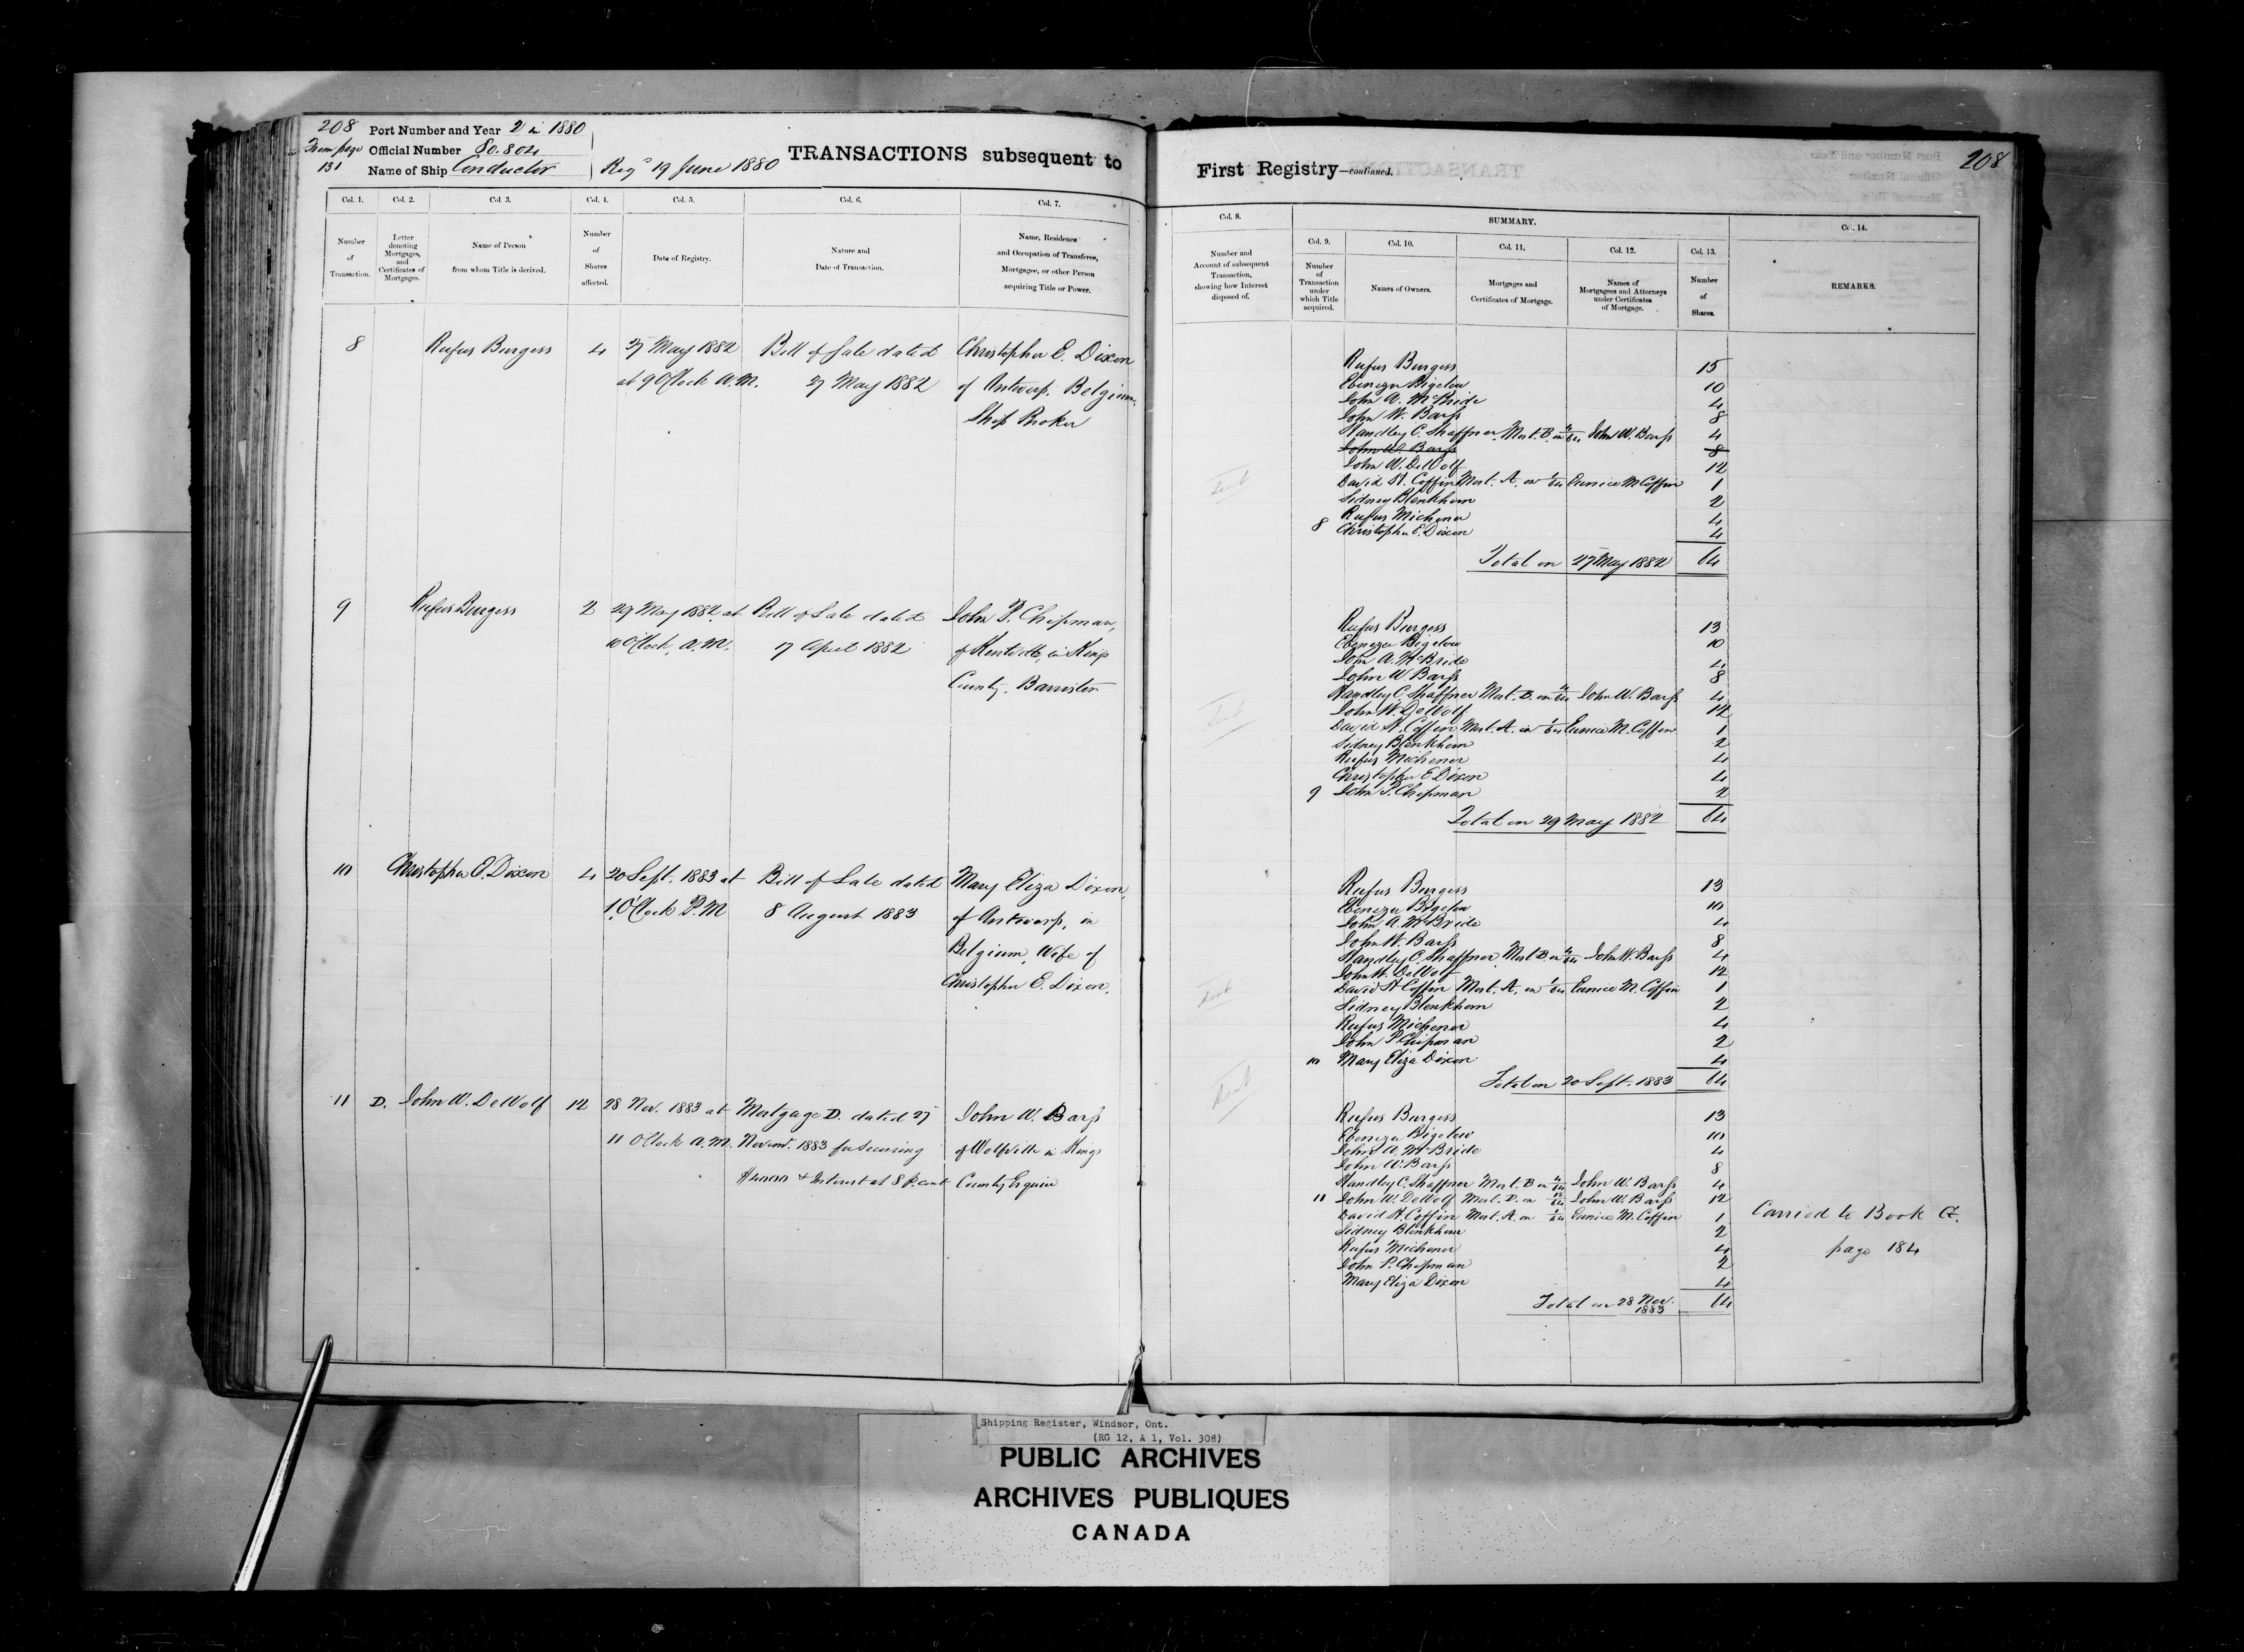 208 Port Number and Year 2 in 1880
From page Official Number 80.804
131 Name of Ship Conductor
Regd 19 June 1880
TRANSACTIONS subsequent to
First Registry—continued.
208
Col. 1.
Col. 2.
Col. 3.
Col. 4.
Col. 5.
Col. 6.
Col. 7.
Number
of
Transaction.
Letter
denoting
Mortgages,
and
Certificates of
Mortgages.
Name of Person
from whom Title is derived.
Number
of
Shares
affected.
Date of Registry.
Nature and
Date of Transaction.
Name, Residence
and Occupation of Transferee,
Mortgagee, or other Person
acquiring Title or Power.
Col. 8.
SUMMARY.
Col. 14.
Number and
Account of subsequent
Transaction,
showing how Interest
disposed of.
Col. 9.
Col. 10.
Col. 11.
Col. 12.
Col. 13.
Number
of
Transaction
under
which Title
acquired.
Names of Owners.
Mortgages and
Certificates of Mortgage.
Names of
Mortgagees and Attorneys
under Certificates
of Mortgage.
Number
of
Shares.
REMARKS.
8 Rufus Burgess 4 27 May 1882 Bill of Sale dated Christopher E. Dixon
at 9 O'Clock A.M. 27 May 1882 of Antwerp, Belgium,
Ship Broker
Rufus Burgess 15
Ebenezer Bigelow 10
John A. McBride 4
John W. Barss 8
Handley C. Shaffner Mort. B. on 4/64 John W. Barss 4
John W. Barss 8
John W. DeWolf 12
David H. Coffin Mort. A. on 1/64 Eunice M. Coffin 1
Sidney Blenkhorn 2
Rufus Michener 4
8 Christopher E. Dixon 4
Total on 27 May 1882 64
9 Rufus Burgess 2 29 May 1882 at Bill of Sale dated John P. Chipman,
10 O'Clock, A.M. 17 April 1882 of Kentville, in Kings
County, Barrister
Rufus Burgess 13
Ebenezer Bigelow 10
John A. McBride 4
John W. Barss 8
Handley C. Shaffner Mort. B. on 4/64 John W. Barss 4
John W. DeWolf 12
David H. Coffin Mort. A. on 1/64 Eunice M. Coffin 1
Sidney Blenkhorn 2
Rufus Michener 4
Christopher E Dixon 4
9 John P. Chipman 2
Total on 29 May 1882 64
10 Christopher E. Dixon 4 20 Sept. 1883 at Bill of Sale dated Mary Eliza Dixon,
1 O'Clock P.M 8 August 1883 of Antwerp, in
Belgium, Wife of
Christopher E. Dixon.
Rufus Burgess 13
Ebenezer Bigelow 10
John A. McBride 4
John W. Barss 8
Handley C. Shaffner Mort B. on 4/64 John W. Barss 4
John W. DeWolf 12
David H Coffin Mort. A. on 1/64 Eunice M. Coffin 1
Sidney Blenkhorn 2
Rufus Michener 4
John P Chipman 2
10 Mary Eliza Dixon 4
Total on 20 Sept. 1883 64
11 D. John W. DeWolf 12 28 Nov. 1883 at Mortgage D. dated 27 John W. Barss
11 O'Clock A.M. Novemr. 1883 for securing of Wolfville in Kings
$4000 & Interest at 8 P. cent County Esquire
Rufus Burgess 13
Ebenezer Bigelow 10
John A. McBride 4
John W. Barss 8
Handley C. Shaffner Mort. B on 4/64 John W. Barss 4
11 John W. DeWolf Mort. D. on 12/64 John W. Barss 12
David H. Coffin Mort. A. on 1/64 Eunice M. Coffin 1
Sidney Blenkhorn 2
Rufus Michener 4
John P. Chipman 2
Mary Eliza Dixon 4
Total on 28 Nov. 1883 64
Carried to Book G.
page 184
Shipping Register, Windsor, Ont.
(RG 12, A 1, Vol. 308)
PUBLIC ARCHIVES
ARCHIVES PUBLIQUES
CANADA